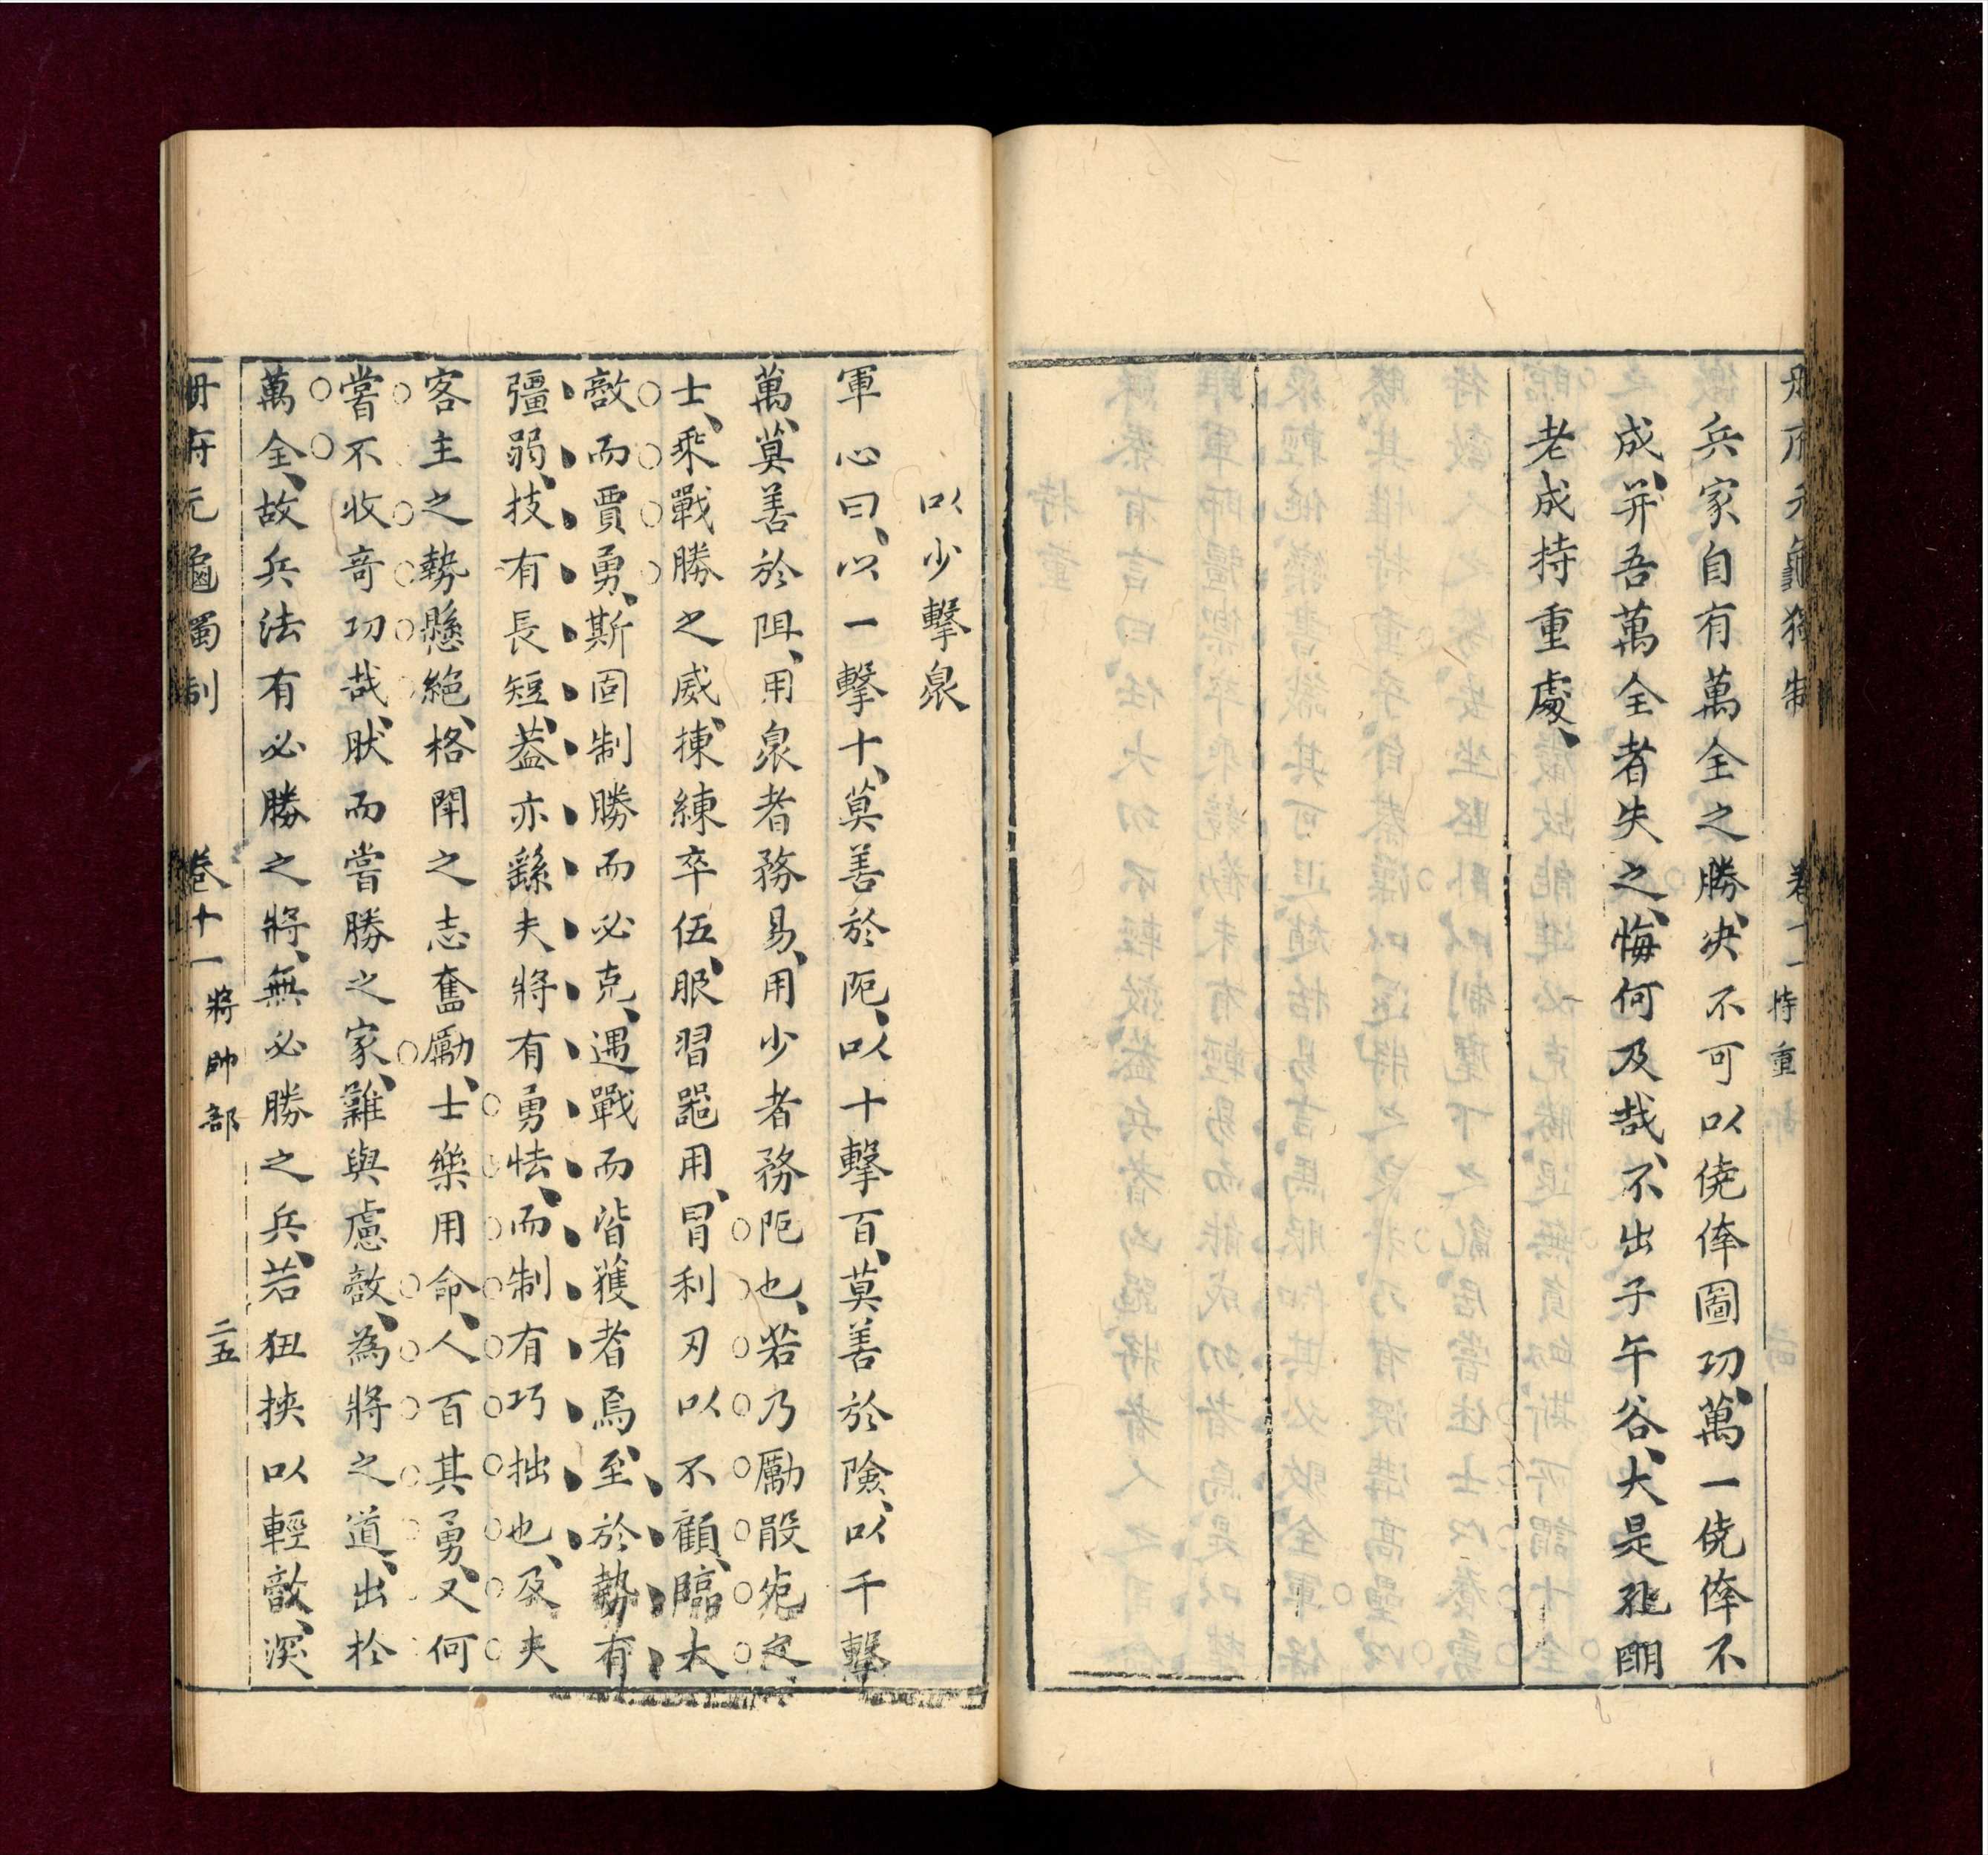 兵家自有萬全之勝、决不可以僥倖圖功、萬一僥倖不
成、并吾萬全者失之、悔何及哉、不出子午谷、大是孔明
老成持重處、
卷十一 持重
以少擊衆
軍心曰、以一擊十、莫善於阨、以十擊百、莫善於險、以千擊
萬、莫善於阻、用衆者務易、用少者務阨也、若乃勵殷㐫之
士、乘戰勝之威、揀練卒伍、服習噐用、冒利刃以不顧、臨大
敵而賈勇、斯固制勝而必克、遇戰而皆獲者焉、至於勢有
彊弱、技有長短、葢亦繇夫將有勇怯、而制有巧拙也、及夫
客主之勢懸絕、格鬪之志奮勵、士樂用命、人百其勇、又何
嘗不收奇功哉、肰而嘗勝之家、難與慮敵、為將之道、出於
萬全、故兵法有必勝之將、無必勝之兵、若狃挾以輕敵、深
冊府元龜獨制 卷十一 將帥部 二五